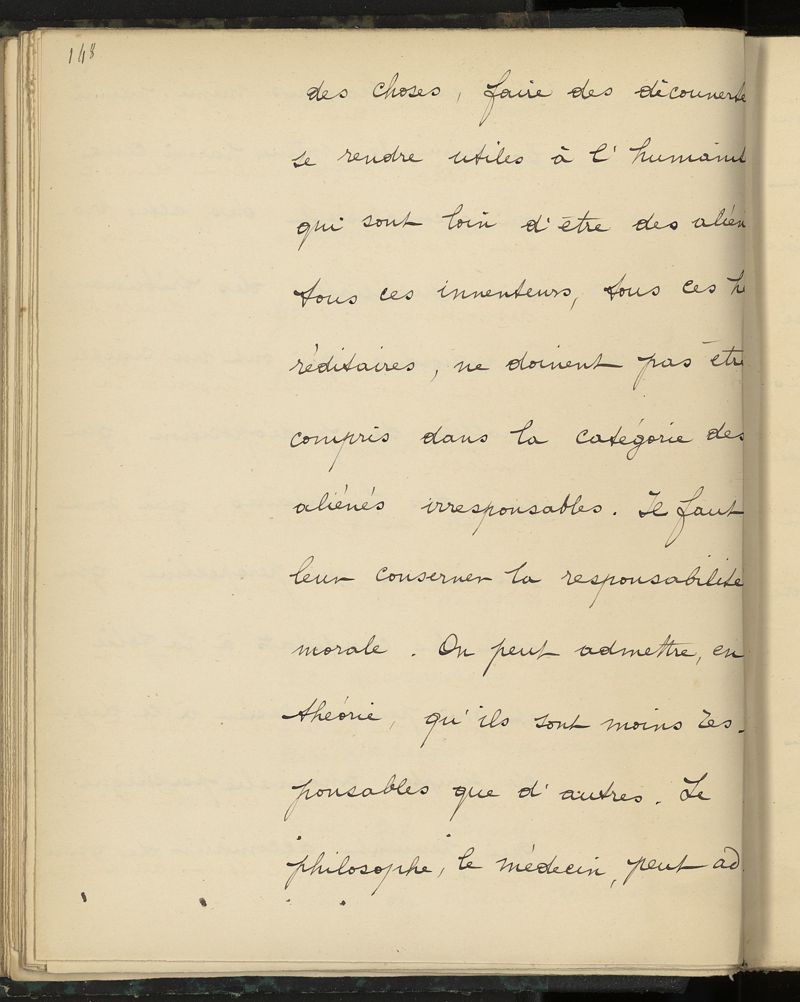 148
des choses, faire des découverte
se rendre utiles à l'humanit
qui sont loin d'être des alién
tous ces inventeurs, tous ces hé
réditaires, ne doivent pas être
compris dans la catégorie des
aliénés irresponsables. Il faut
leur conserver la responsabilité
morale. On peut admettre, en
théorie, qu'ils sont moins res-
ponsables que d'autres. Le
philosophe, le médecin, peut ad